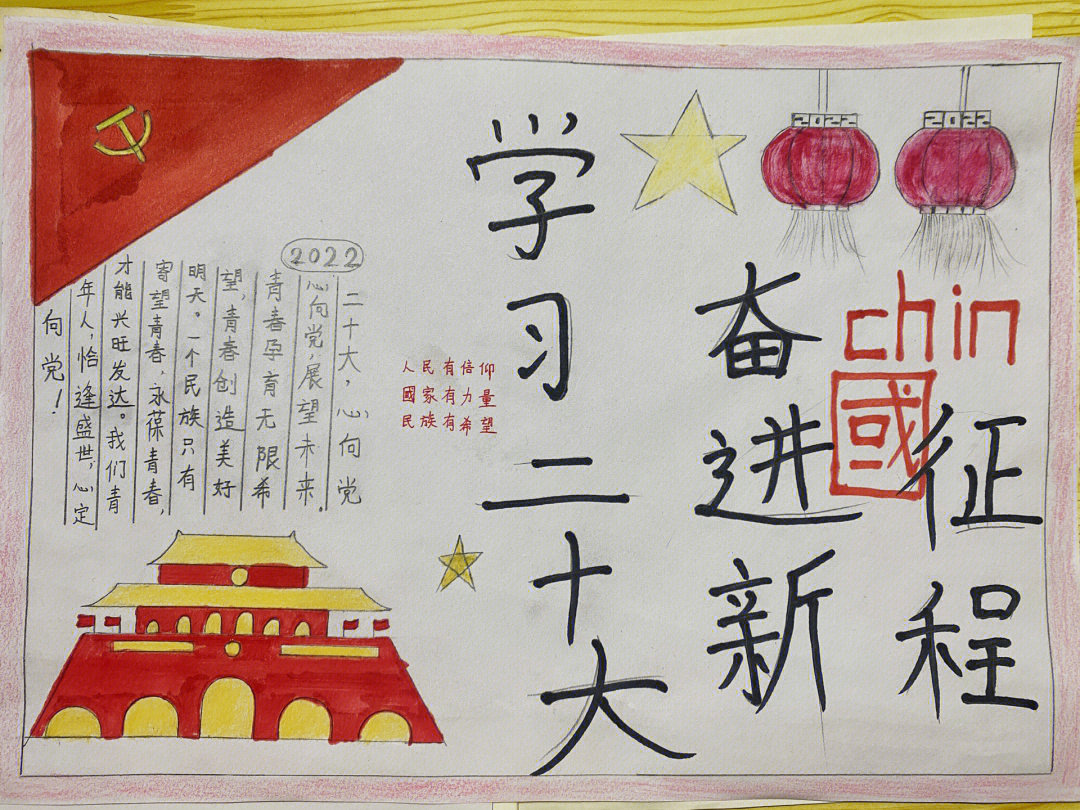 2022
2022
学习二十大
奋进新
征程
chin
國
2022
二十大，心向党
心向党，展望未来。
青春孕育无限希
望，青春创造美好
明天。一个民族只有
寄望青春，永葆青春，
才能兴旺发达。我们青
年人，恰逢盛世，心定
向党！
人民有倍仰
國家有力量
民族有希望